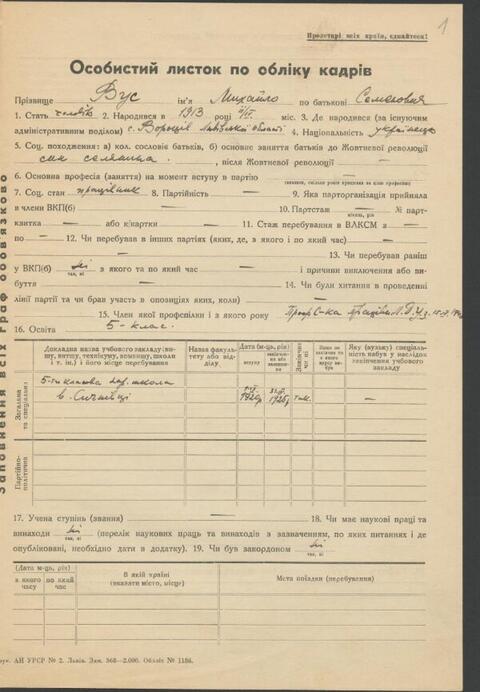 1
Пролетарі всіх країн, єднайтеся!
Особистий листок по обліку кадрів
Прізвище Вус ім'я Михайло по батькові Семенович
1. Стать чоловік 2. Народився в 1913 році міс. 3. Де народився (за існуючим
адміністративним поділом) с. Львівської області 4. Національність українець
5. Соц. походження: а) кол. сословія батьків, б) основне заняття батьків до Жовтневої революції
син селянина, після Жовтневої революції —
6. Основна професія (заняття) на момент вступу в партію —
7. Соц. стан працівник 8. Партійність — 9. Яка парторганізація прийняла
в члени ВКП(б) — 10. Партстаж — № парт-
квитка — або к/картки — 11. Стаж перебування в ВЛКСМ з —
по — 12. Чи перебував в інших партіях (яких, де, з якого і по який час) —
13. Чи перебував раніш
у ВКП(б) ні з якого та по який час — і причини виключення або ви-
буття — 14. Чи були хитання в проведенні
лінії партії та чи брав участь в опозиціях яких, коли) —
15. Член якої профспілки і з якого року
16. Освіта 5-клас.
Докладна назва учбового закладу (ви-
шу, втишу, технікуму, комвишу, школи
і т. ін.) і його місце перебування
Назва факуль-
тету або від-
ділу
Дата (м-ць, рік)
вступу
Закінчив
чи ні
Яку (вузьку) спеціаль-
ність набув у наслідок
закінчення учбового
закладу
Загальна
та спеціальна
школа
в.
1926р
так
—
Партійно-
політична
17. Учена ступінь (звання) — 18. Чи має наукові праці та
винаходи ні (перелік наукових праць та винаходів з зазначенням, по яких питаннях і де
опубліковані, необхідно дати в додатку). 19. Чи був закордоном ні
(Дата м-ць, рік)
з якого
часу
по який
час
В якій країні
(вказати місто, місце)
Мета поїздки (перебування)
рук. АН УРСР № 2. Львів. Зам. 368—2.000. Обліт № 1186.
Заповнення всіх граф обовязково